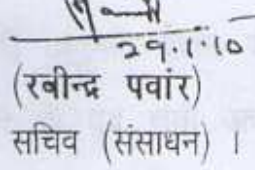 29.1.10
(रबीन्द्र पवांर)
सचिव (संसाधन) ।